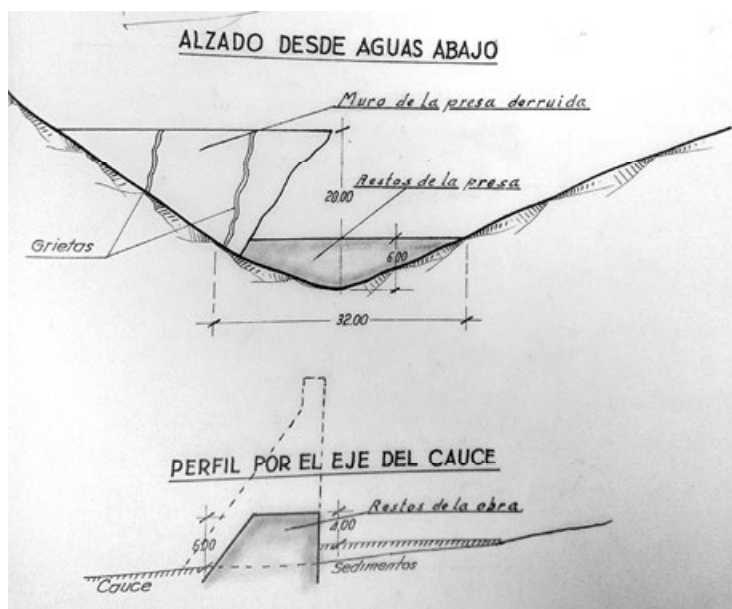 ALZADO DESDE AGUAS ABAJO
Muro de la presa derruida
Restos de la presa
20.00
Grietas
6.00
32.00
PERFIL POR EL EJE DEL CAUCE
Restos de la obra
6.00
4.00
Sedimentos
Cauce